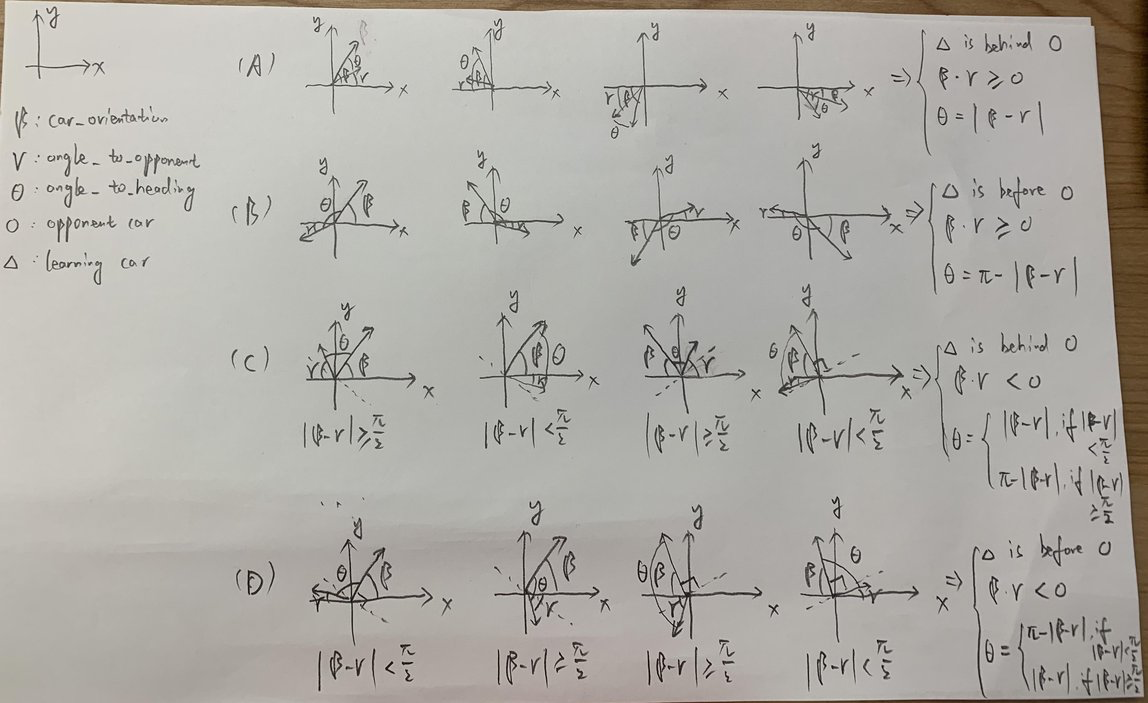 y
x
β : car_orientation
r : angle_to_opponent
θ : angle_to_heading
O : opponent car
Δ : learning car
(A)
y θ β r x
y θ r β x
y r β θ x
y r β θ x
⇒ { Δ is behind O
β · r ≥ 0
θ = | β - r |
(B)
y θ β r x
y β θ r x
y β θ r x
y r θ β x
⇒ { Δ is before O
β · r ≥ 0
θ = π - | β - r |
(C)
y r θ β x
y β θ r x
y β θ r x
y θ β r x
|β-r| ≥ π/2
|β-r| < π/2
|β-r| ≥ π/2
|β-r| < π/2
⇒ { Δ is behind O
β · r < 0
θ = { |β-r|, if |β-r| < π/2
π-|β-r|, if |β-r| ≥ π/2
(D)
y θ β r x
y β θ r x
y θ β r x
y β θ r x
|β-r| < π/2
|β-r| ≥ π/2
|β-r| ≥ π/2
|β-r| < π/2
⇒ { Δ is before O
β · r < 0
θ = { π-|β-r|, if |β-r| < π/2
|β-r|, if |β-r| ≥ π/2